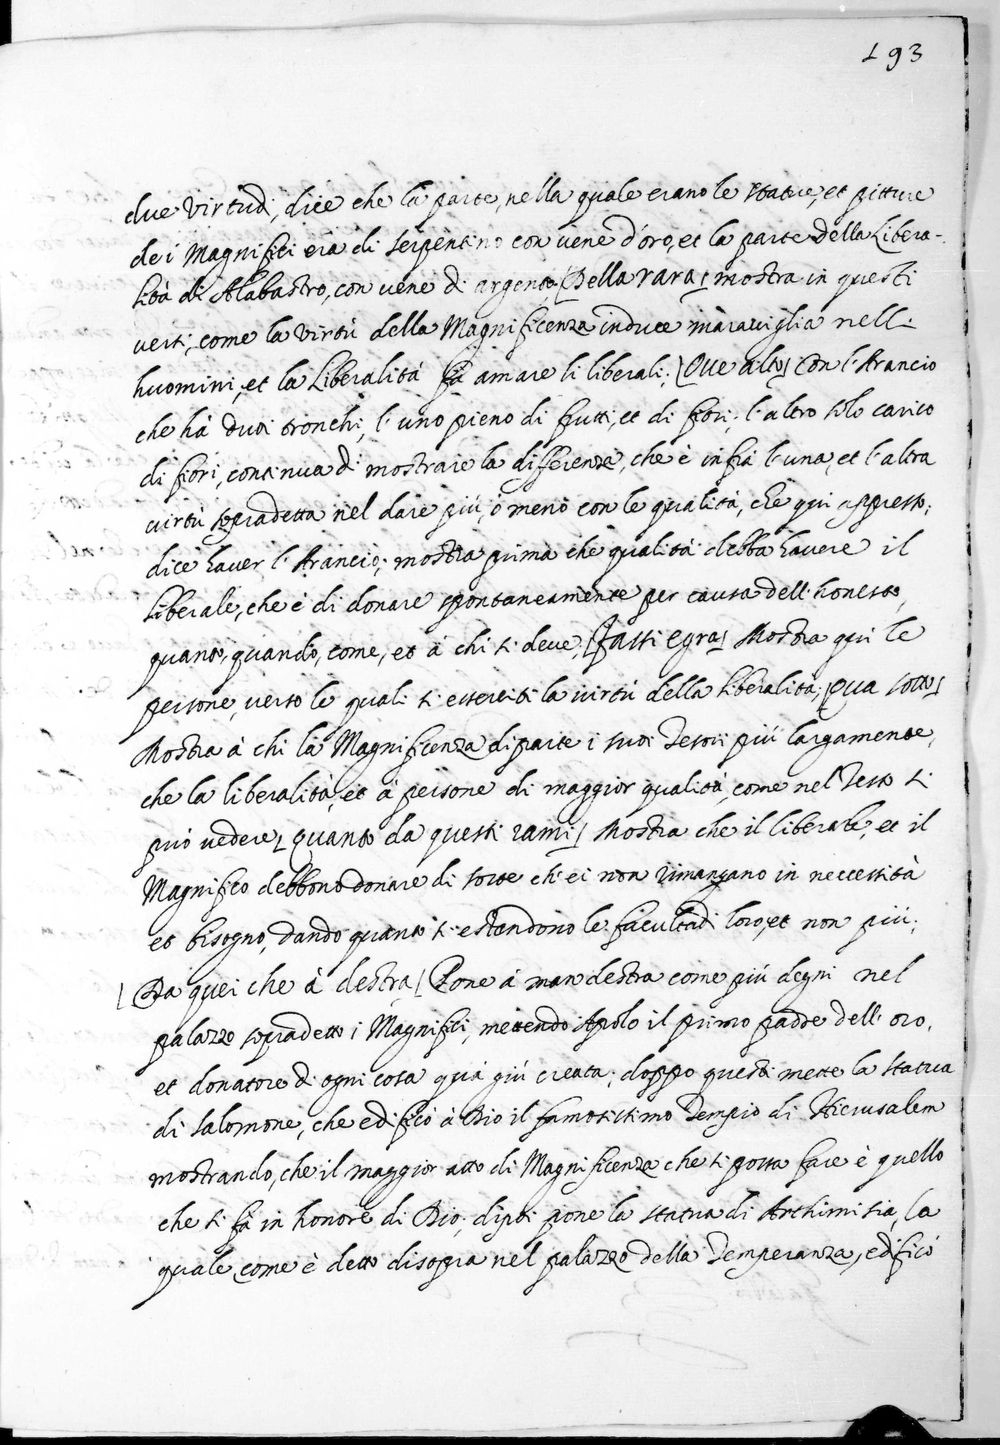 193
due virtudi, dice che la parte, nella quale erano le statue, et pitture
dei Magnifici era di serpentino con vene d'oro, et la parte della Libera-
lità di Alabastro, con vene di argento [Della rara] mostra in questi
versi, come la virtù della Magnificenza induce maraviglia nelli
huomini, et la Liberalità fà amare li liberali; [Que alto] Con l'Arancio
che hà duoi tronchi, l'uno pieno di frutti, et di fiori; l'altro solo carico
di fiori, continua di mostrare la differenza, che è infra l'una, et l'altra
virtù sopradetta nel dare più, ò meno con le qualità, che qui appresso,
dice haver l'Arancio; mostra prima che qualità debba havere il
liberale, che è di donare spontaneamente per causa dell'honesto,
quanto, quando, come, et à chi si deve, [fassi egra] Mostra qui le
persone, verso le quali si esserciti la virtù della liberalità; [Qua sotto]
Mostra à chi la Magnificenza diparte i suoi Tesori più largamente,
che la liberalità, et à persone di maggior qualità, come nel Testo si
può vedere [Quanto da questi rami] Mostra che il liberale, et il
Magnifico debbono donare di sorte ch'ei non rimangano in neccessità
et bisogno, dando quanto si estendono le facultadi loro, et non più;
[Da quei che à destra] Pone à man destra come più degni nel
palazzo sopradetto i Magnifici, mettendo Apolo il primo padre dell'oro,
et donatore di ogni cosa quà giù creata; doppo questi mette la statua
di Salomone, che edificò à Dio il famosissimo Tempio di Hierusalem
mostrando, che il maggior atto di Magnificenza che si possa fare è quello
che si fà in honore di Dio; dipoi pone la statua di Arthimisia, la
quale come è detto disopra nel palazzo della Temperanza, edificò